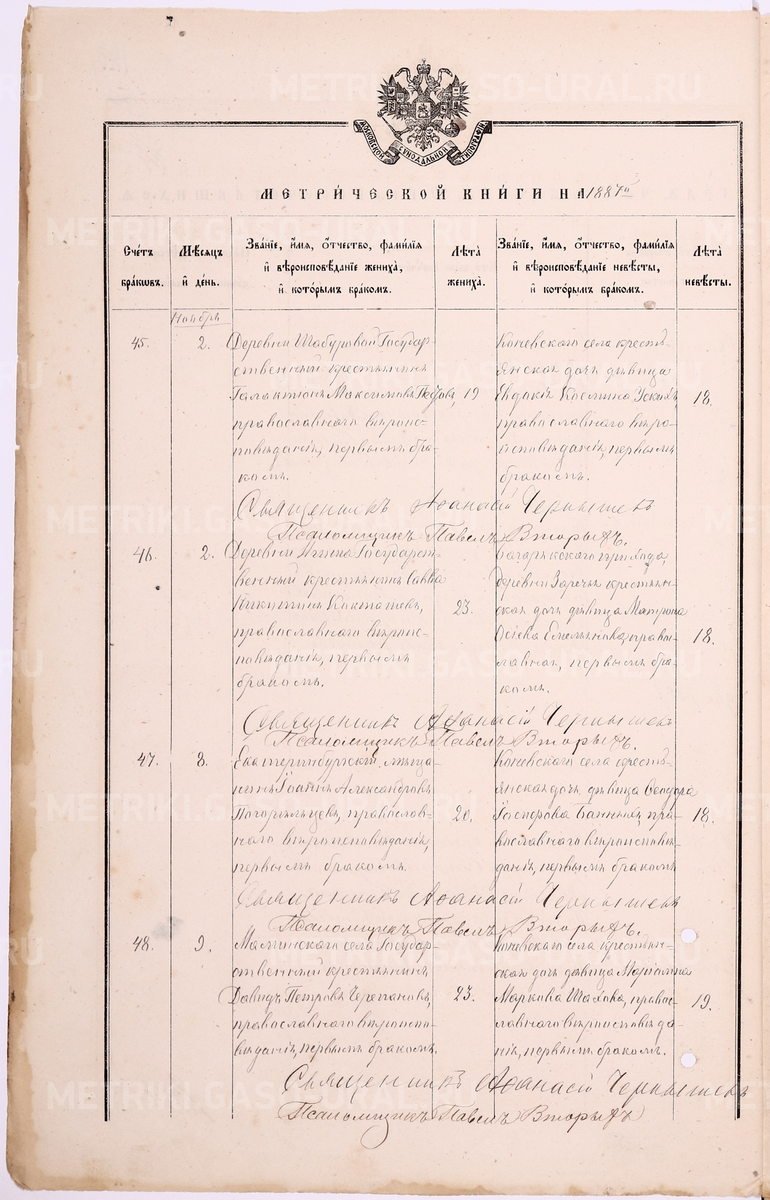 МОСКОВСКОЙ СѴНОДАЛЬНОЙ ТИПОГРАФІИ
МЕТРИ́ЧЕСКОЙ КНИ́ГИ НА 1887 й
Сче́тъ бра́кωвъ.
Мѣ́сяцъ й де́нь.
Зва́нїе, и҆́мѧ, ѻ҆́тчество, фами́лїѧ й вѣроисповѣ́данїе жениха̀, й кото́рымъ бра́комъ.
Лѣ́та жениха̀.
Зва́нїе, и҆́мѧ, ѻ҆́тчество, фами́лїѧ й вѣроисповѣ́данїе невѣ́сты, й кото́рымъ бра́комъ.
Лѣ́та невѣ́сты.
Ноябрь
45.
2.
Деревни Шабуровой Государ-
ственный крестьянинъ
Галактіонъ Максимовъ
православнаго вѣроис-
повѣданія, первымъ бра-
комъ.
19
Коневскаго села кресть-
янская дочь дѣвица
Евдокія Космина Ускихъ
православнаго вѣро-
исповѣданія, первымъ
бракомъ.
18.
Священникъ Аѳанасій Чернышевъ
Псаломщикъ Павелъ Вторыхъ.
46.
2.
Деревни Государст-
венный крестьянинъ Савва
Никитинъ
православнаго вѣроис-
повѣданія, первымъ
бракомъ.
23.
Багарякскаго прихода,
деревни Заречья крестьян-
ская дочь дѣвица Матрона
Осіева Емельянова, право-
славная, первымъ бра-
комъ.
18.
Священникъ Аѳанасій Чернышевъ
Псаломщикъ Павелъ Вторыхъ.
47.
8.
Екатеринбургскій мѣща-
нинъ Іоаннъ Александровъ
Погорѣльцевъ, православ-
наго вѣроисповѣданія,
первымъ бракомъ.
20.
Коневскаго села кресть-
янская дочь дѣвица Ѳеодора
пра-
вославнаго вѣроисповѣ-
данія, первымъ бракомъ
18.
Священникъ Аѳанасій Чернышевъ
Псаломщикъ Павелъ Вторыхъ.
48.
9.
села Государ-
ственный крестьянинъ
Давидъ Петровъ Черепановъ,
православнаго вѣроиспо-
вѣданія, первымъ бракомъ.
23.
Коневскаго села крестьян-
ская дочь дѣвица Маріамна
Маркова Шахова, право-
славнаго вѣроисповѣда-
нія, первымъ бракомъ.
19.
Священникъ Аѳанасій Чернышевъ
Псаломщикъ Павелъ Вторыхъ
METRIKI.GASO-URAL.RU